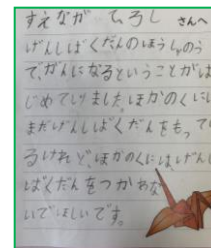 すえなが ひろし さんへ
げんしばくだんのほうしゃのう
で、がんになるということがは
じめてしりました。ほかのくには
まだげんしばくだんをもってい
るけれどほかのくには、げんし
ばくだんをつかわな
いでほしいです。